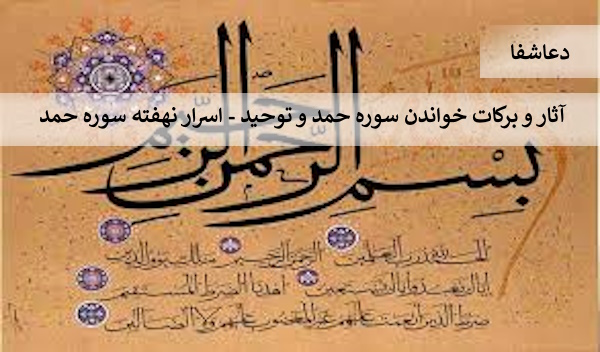 دعاشفا
آثار و برکات خواندن سوره حمد و توحید - اسرار نهفته سوره حمد
بسم الله الرحمن الرحیم
الحمد لله رب العالمین الرحمن الرحیم مالک یوم الدین
ایاک نعبد و ایاک نستعین اهدنا الصراط المستقیم
صراط الذین انعمت علیهم غیر المغضوب علیهم ولا الضالین